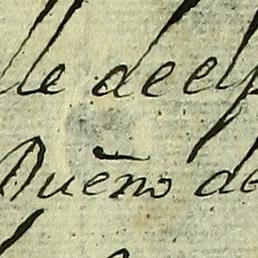 lle deel
Dueño de